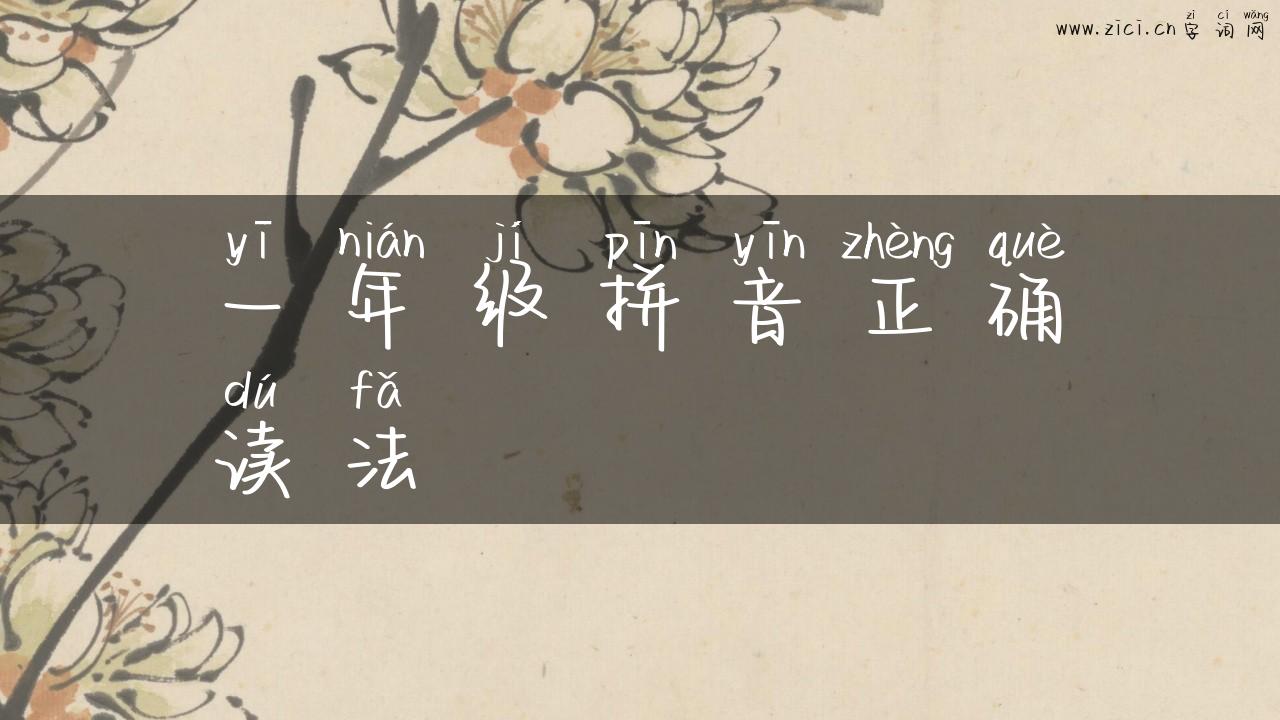 zì cí wǎng
www.zici.cn 字词网
yī nián jí pīn yīn zhèng què
一年级拼音正确
dú fǎ
读法